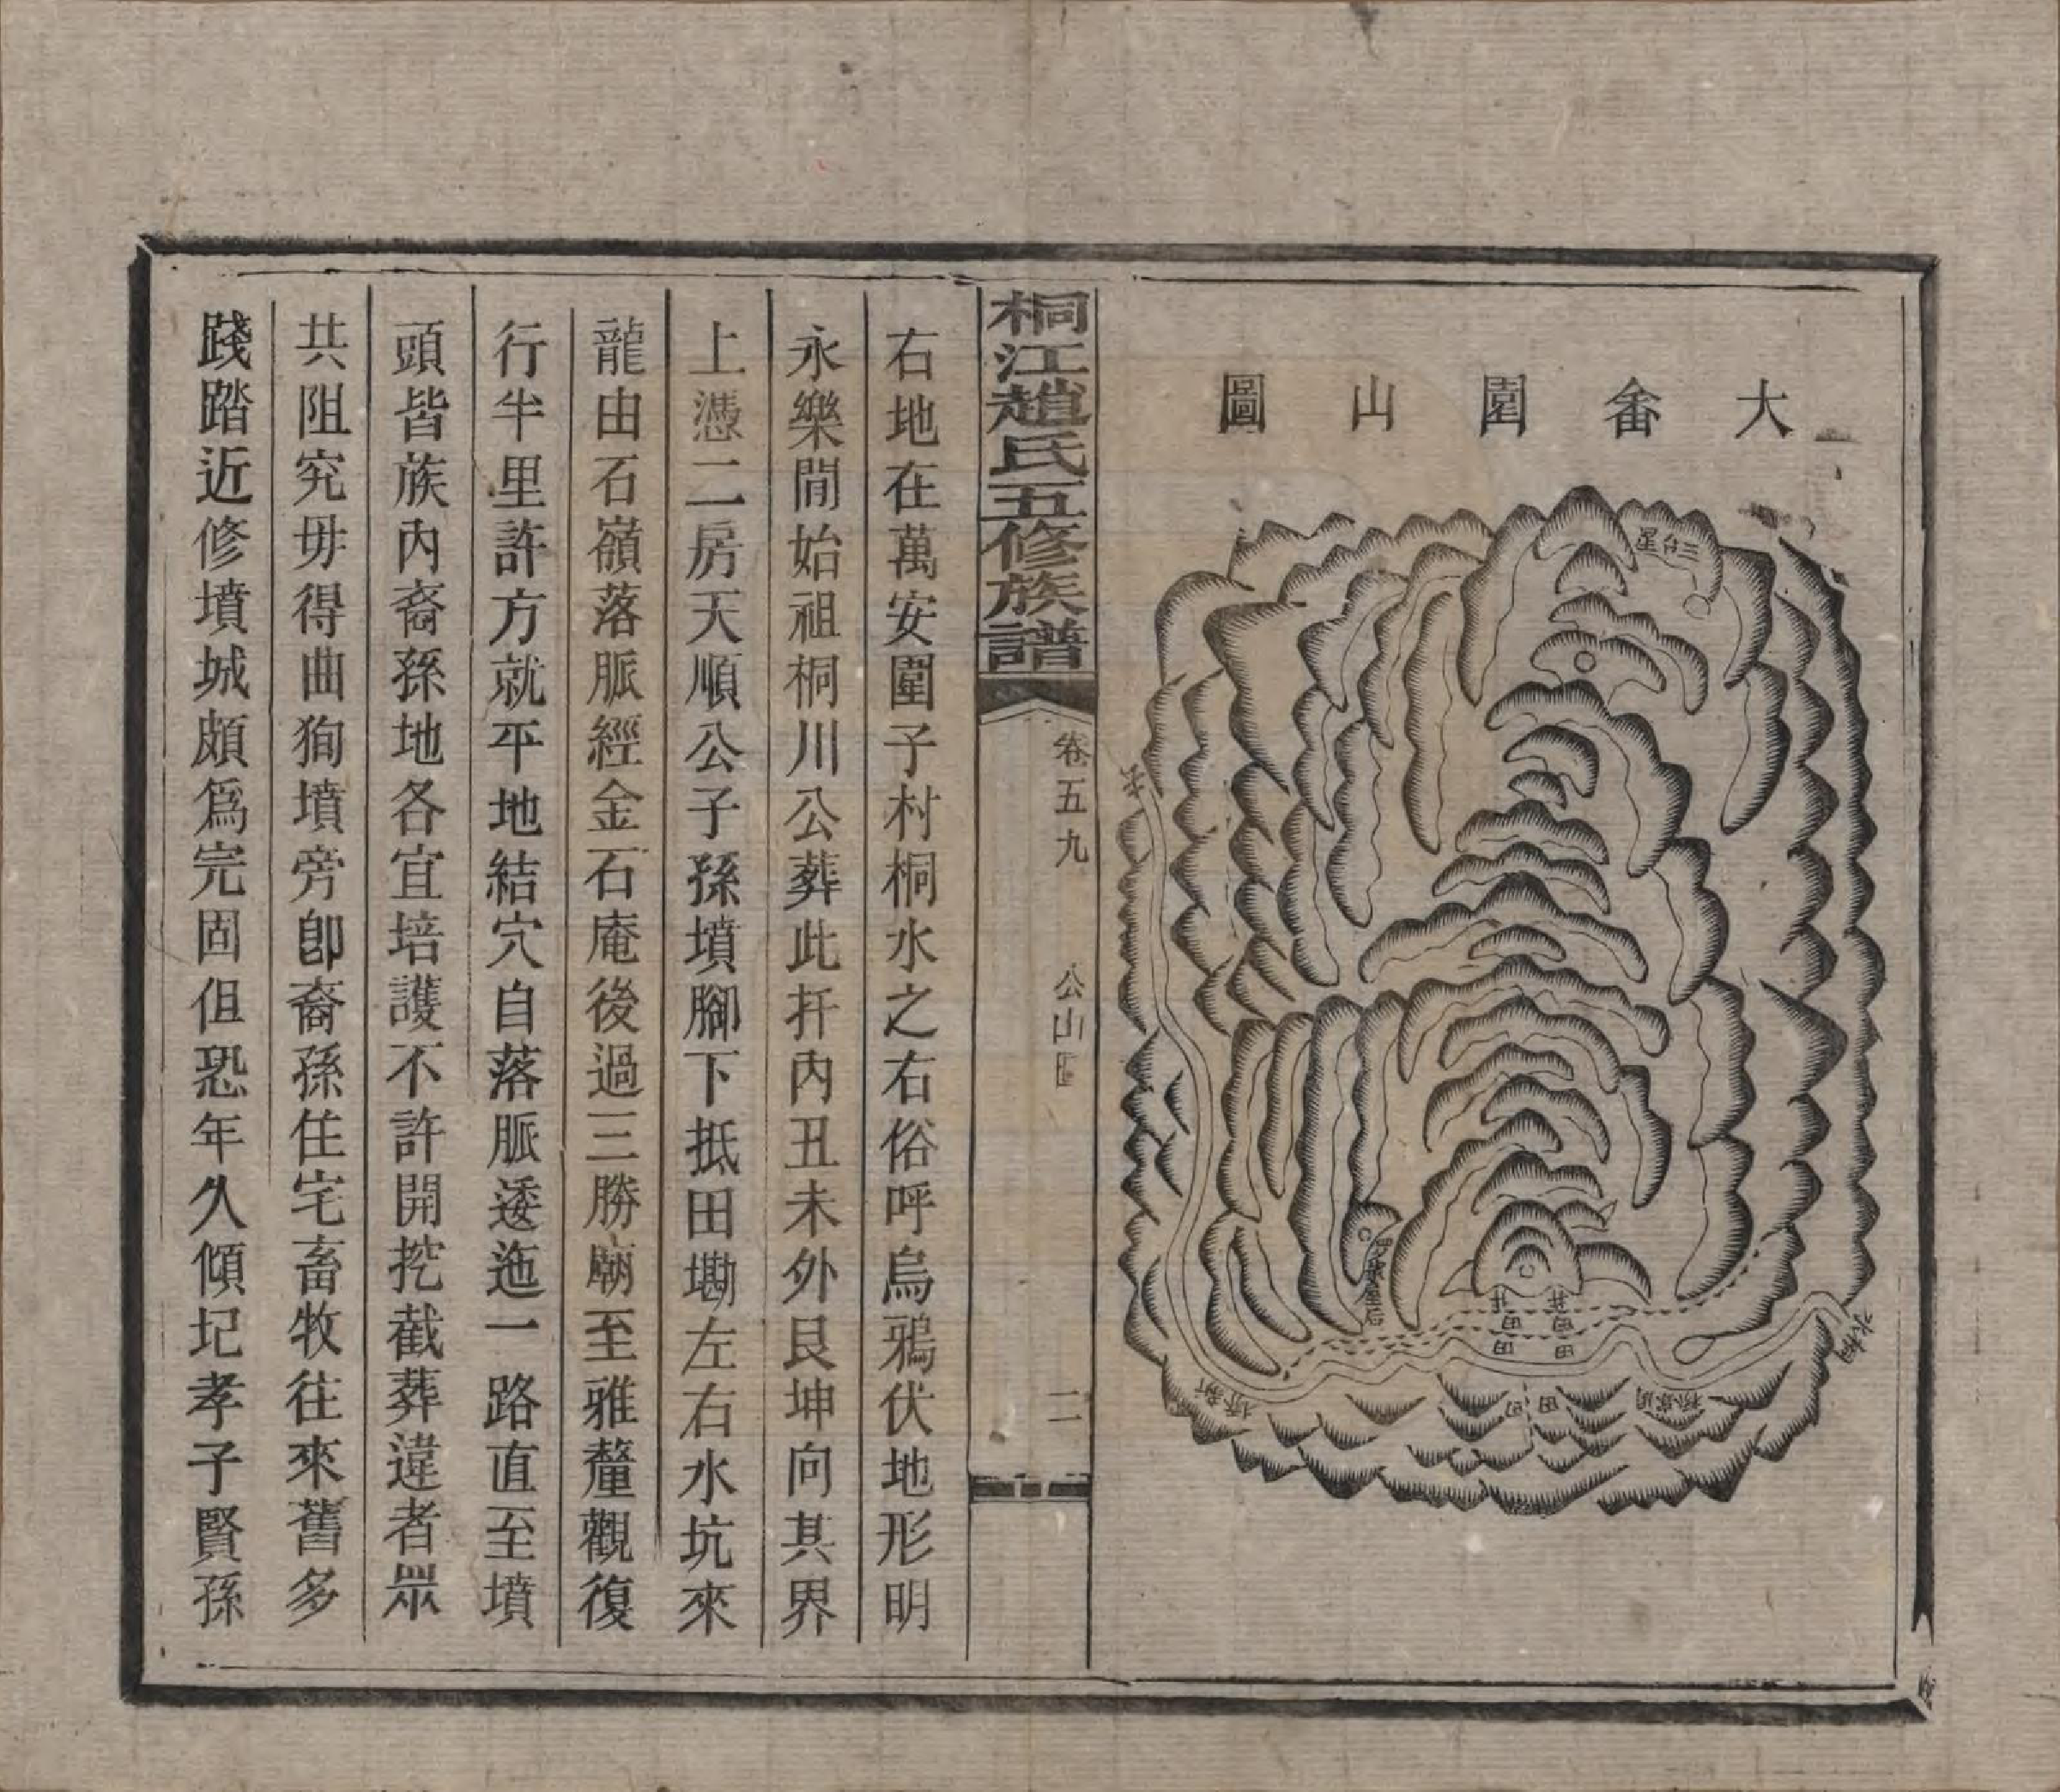 大畬園山圖
三台星
水桐
田
田
田
田
桐江趙氏五修族譜
卷五九
公山
二
右地在萬安圍子村桐水之右俗呼烏鴉伏地形明
永樂間始祖桐川公葬此扦內丑未外艮坤向其界
上憑二房天順公子孫墳腳下抵田墈左右水坑來
龍由石嶺落脈經金石庵後過三勝廟至雅釐觀復
行半里許方就平地結穴自落脈逶迤一路直至墳
頭皆族內裔孫地各宜培護不許開挖截葬違者眾
共阻究毋得曲狥墳旁卽裔孫住宅畜牧往來舊多
踐踏近修墳城頗爲完固但恐年久傾圮孝子賢孫